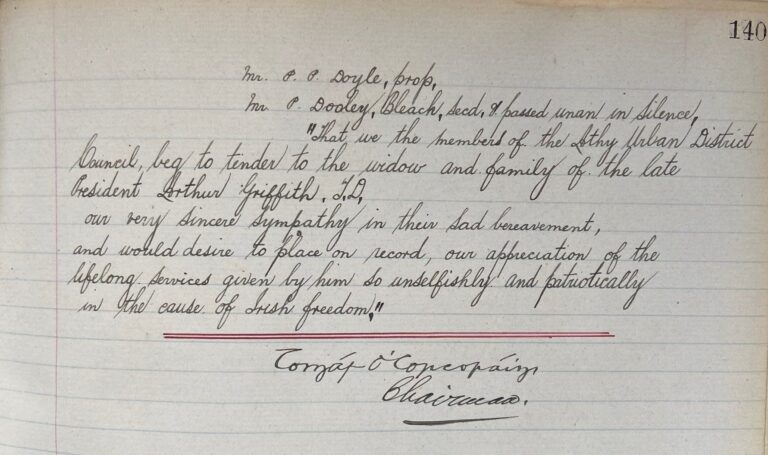 140
Mr. P. P. Doyle, prop,
Mr P. Dooley, Bleach, secd, & passed unan in silence,
"That we the members of the Athy Urban District
Council, beg to tender to the widow and family of the late
President Arthur Griffith, T.D,
our very sincere sympathy in their sad bereavement,
and would desire to place on record, our appreciation of the
lifelong services given by him so unselfishly and patriotically
in the cause of Irish freedom,"
Tomás Ó'Corcoráin
Chairman.